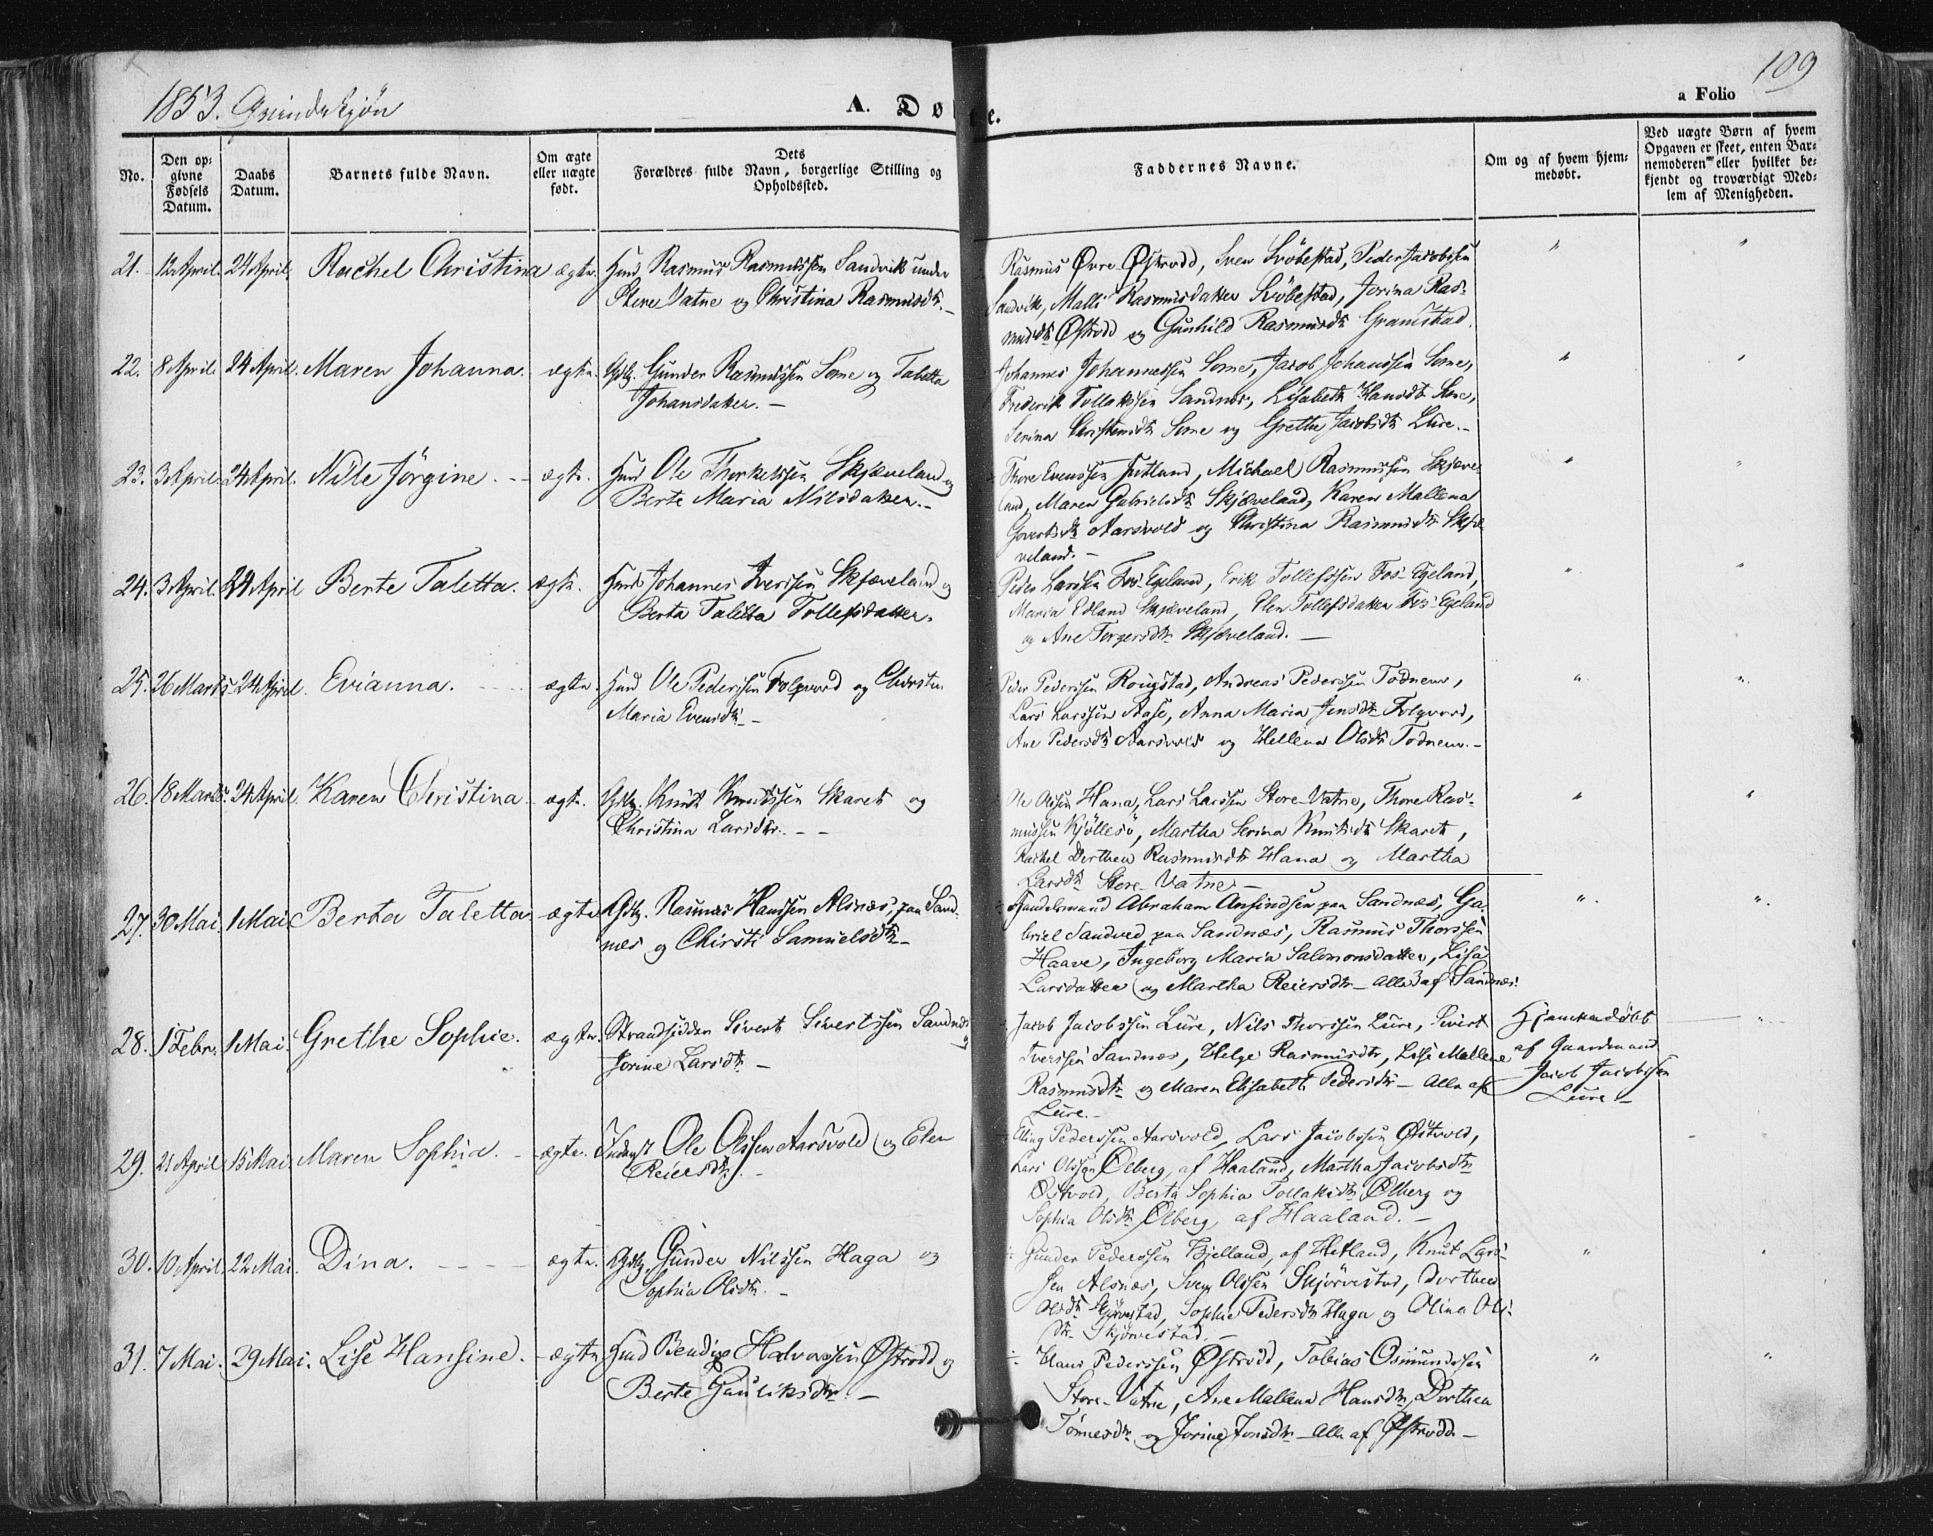 109
1853. Qvindekjön
A. Døbte.
a Folio
No.
Den opgivne Fødsels Datum.
Daabs Datum.
Barnets fulde Navn.
Om ægte eller uægte født.
Dets Forældres fulde Navn, borgerlige Stilling og Opholdssted.
Faddernes Navne.
Om og af hvem hjemmedøbt.
Ved uægte Børn af hvem Opgaven er skeet, enten Barnemoderen eller hvilket bekjendt og troværdigt Medlem af Menigheden.
21. 12 April. 24 April. Rachel Christina ægte. Huusmd Rasmus Rasmussen Sandvik under
Store Vatne og Christina Rasmusdtr. –
Rasmus Øvre-Østrodd, Sven Svöbestad, Peder Jacobsen
Sandvik, Malli Rasmusdatter Svöbestad, Jorina Ras-
musdtr Østrodd og Gunhild Rasmusdtr Gramstad.
" "
22. 8 April. 24 April. Maren Johanna. ægte. Gdbr. Gunder Rasmussen Some og Taletta
Johansdatter. –
Johannes Johannessen Some, Jacob Johanssen Some,
Frederik Tollakssen Sandnes, Lisabeth Hansdtr Some,
Serina Christensdtr Some og Grethe Jacobsdtr Lure. –
" "
23. 3 April. 24 April. Nille Jörgine. - - ægte. Huusmd Ole Thorkelssen Skjæveland og
Berte Maria Nilsdatter. –
Thore Evenssen Jutland, Michael Rasmussen Skjæve-
land, Maren Gabrielsdtr Skjæveland, Karen Mallena
Govertsdtr Aarsvold og Christina Rasmusdtr Skjæ-
veland. –
" "
24. 3 April. 24 April Berte Taletta. ægte. Huusmd Johannes Iverssen Skjæveland og
Berta Taletta Tollefsdatter.
Peder Larssen Fos-Egeland, Erik Tollefssen Fos-Egeland,
Maria Edland Skjæveland, Elen Tollefsdatter Fos-Egeland
og Ane Torgersdtr Skjæveland. –
" "
25. 26 Marts 24 April. Evianna. - - - ægte. Huusmd Ole Pederssen Folqvord og Chirsten
Maria Evensdtr –
Peder Pederssen Rougstad, Andreas Pederssen Todnem,
Lars Larssen Aase, Anna Maria Jensdtr Folqvord,
Ane Pedersdtr Aarsvold og Hellena Olsdtr Todnem. –
" "
26. 18 Marts. 24 April. Karen Christina. ægte. Gdbr. Knut Knutssen Skaret og
Christina Larsdtr. - -
Ole Olssen Hana, Lars Larssen Store-Vatne, Thore Ras-
mussen Kjöllesö, Martha Serina Knutsdtr Skaret,
Rachel Dorthea Rasmusdtr Hana og Martha
Larsdtr Store-Vatne –
" "
27. 30 Mai. 1 Mai. Berta Taletta ægte Gdbr. Rasmus Hanssen Alsnæs, paa Sand-
næs og Chirsti Samuelsdtr –
Handelsmand Abraham Ansindsen paa Sandnæs, Ga-
briel Sandved paa Sandnæs, Rasmus Thorssen
Haave, Ingeborg Maria Salomonsdatter, Lisa
Larsdatter og Martha Reiersdtr – alle 3 af Sandnæs.
" "
28. 1 Febr. 1 Mai. Grethe Sophie. ægte. Strandsidder Sivert Sivertssen Sandnæs og
Jorine Larsdtr –
Jacob Jacobssen Lure, Nils Thorssen Lure, Sivert
Iverssen Sandnæs, Helge Rasmusdtr, Lise Mallene
Rasmusdtr og Maren Elisabeth Pedersdtr – Alle af
Lure. –
Hjemmedöbt
af Gaardmand
Jacob Jacobssen
Lure –
"
29. 21 April 15 Mai. Maren Sophia. - ægte. Inderst Ole Olssen Aarsvold og Elen
Reiersdtr. –
Eling Pederssen Aarsvold, Lars Jacobssen Østvold,
Lars Olssen Ølberg, af Haaland, Martha Jacobsdtr
Østvold, Berta Sophia Tollaksdtr Ølberg og
Sophia Olsdtr Ølberg, af Haaland. –
30. 10 April. 22 Mai. Dina. - - - - ægte. Gdbr. Gunder Nilssen Haga og
Sophia Olsdtr. –
Gunder Pederssen Bjelland, af Hetland, Knut Lars-
sen Alsnæs, Sven Olssen Skjörvestad, Dorthea
Olsdtr Skjörvestad, Sophie Pedersdtr Haga og Olina Ols-
dtr Skjörvestad. –
" "
31. 7 Mai. 29 Mai. Lise Hansine. - ægte Huusmd Bendix Halvorssen Østrodd og
Berte Gauliksdtr. –
Hans Pederssen Østrodd, Tobias Osmundssen
Store-Vatne, Ane Mallena Hansdtr, Dorthea
Tönnesdtr og Jorine Jonsdtr – Alle af Østrodd. –
" "